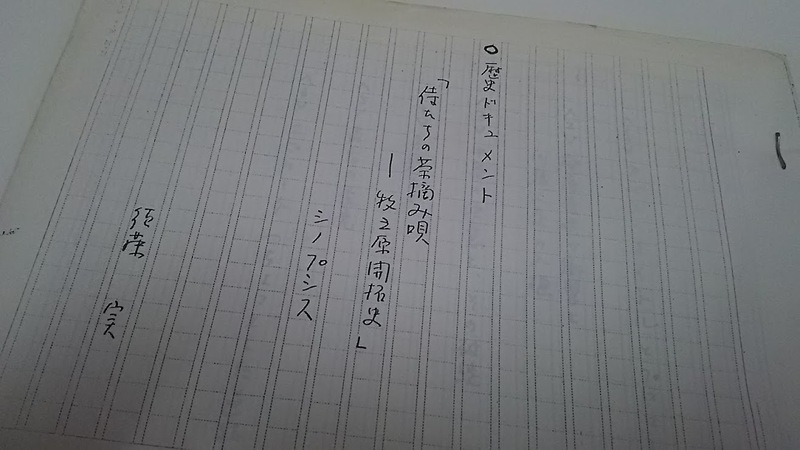 ○歴史ドキュメント
「侍たちの茶摘み唄
ー牧之原開拓史」
シノプシス
須藤 実